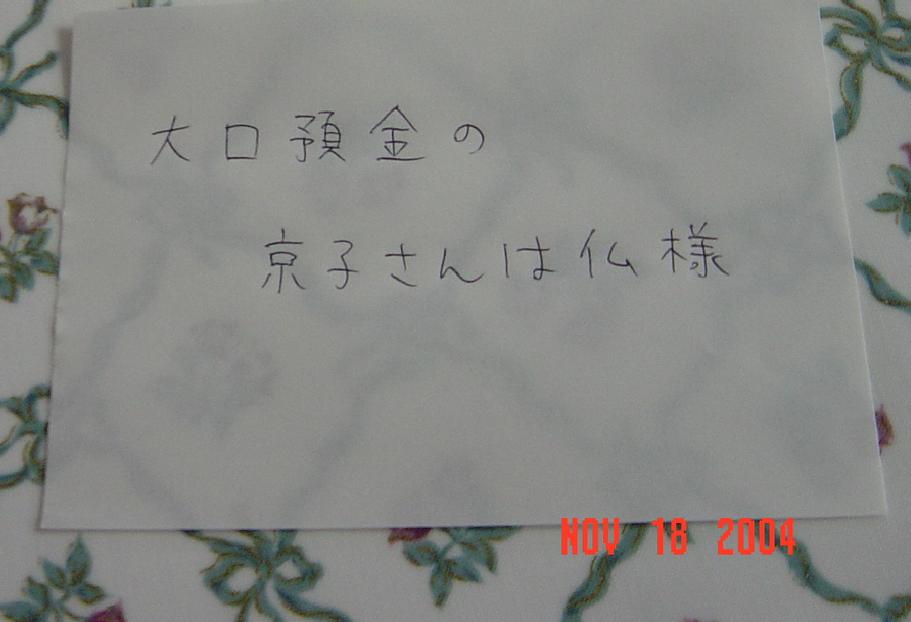 大口預金の
京子さんは仏様
NOV 18 2004